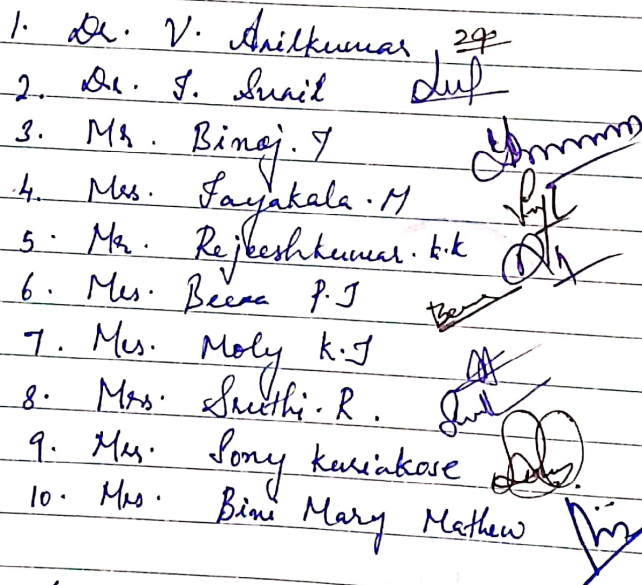 1. Dr. V. Anilkumar
2. Dr. J. Sunil
3. Mr. Binoj. J
4. Mrs. Jayakala. M
5. Mr. Rejeeshkumar. k.k
6. Mrs. Beena P.J
7. Mrs. Moly K.J
8. Mrs. Sruthi. R.
9. Mrs. Sony kuriakose
10. Mrs. Bini Mary Mathew